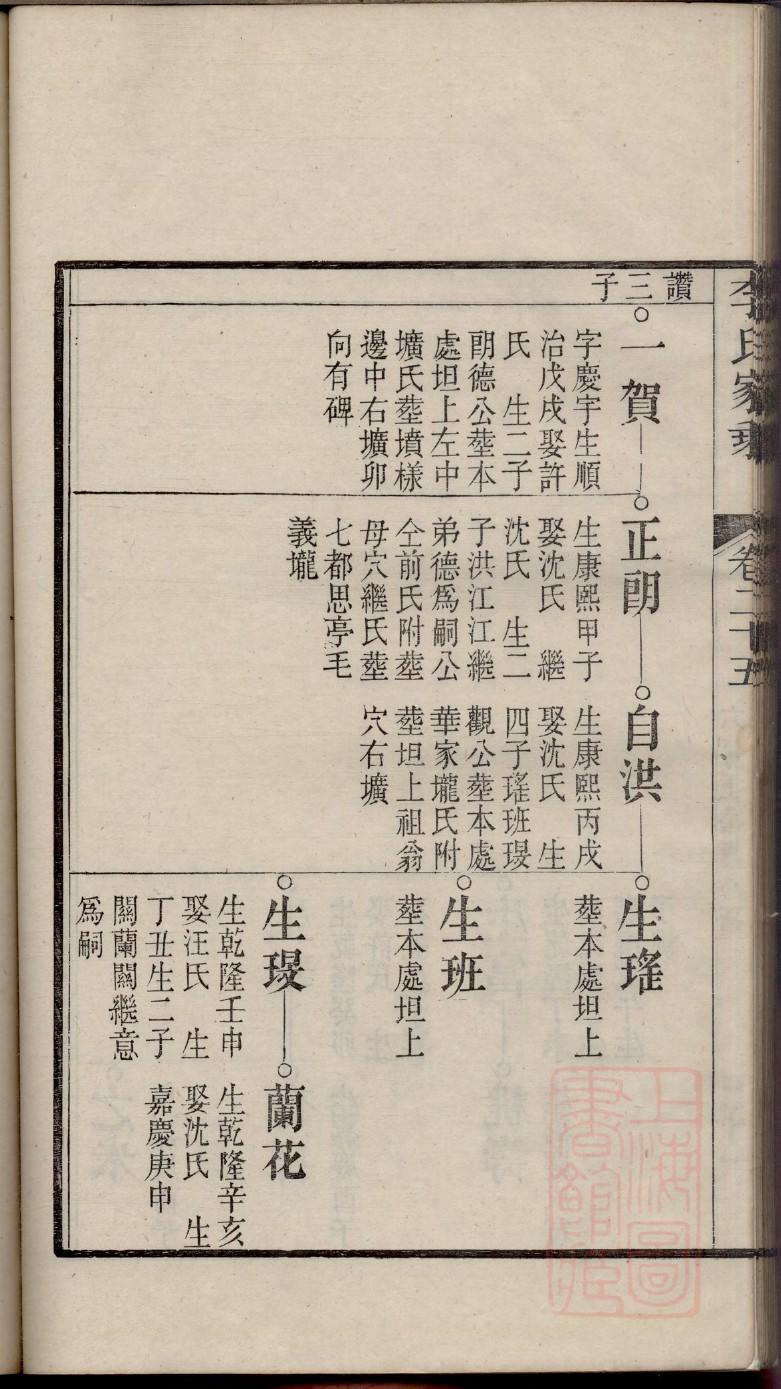 李氏家乘
卷二十五
讚三子
一賀
字慶宇生順
治戊戌娶許
氏　生二子
朙德公塟本
處坦上左中
壙氏塟墳樣
邊中右壙卯
向有碑
正朙
生康熙甲子
娶沈氏　繼
沈氏　生二
子洪江江繼
弟德爲嗣公
仝前氏附塟
母穴繼氏塟
七都思亭毛
義壠
自洪
生康熙丙戌
娶沈氏　生
四子瑤班
觀公塟本處
華家壠氏附
塟坦上祖翁
穴右壙
生瑤
塟本處坦上
生班
塟本處坦上
生
生乾隆壬申
娶汪氏　生
丁丑生二子
關蘭關繼意
爲嗣
蘭花
生乾隆辛亥
娶沈氏　生
嘉慶庚申
上海圖
書館藏